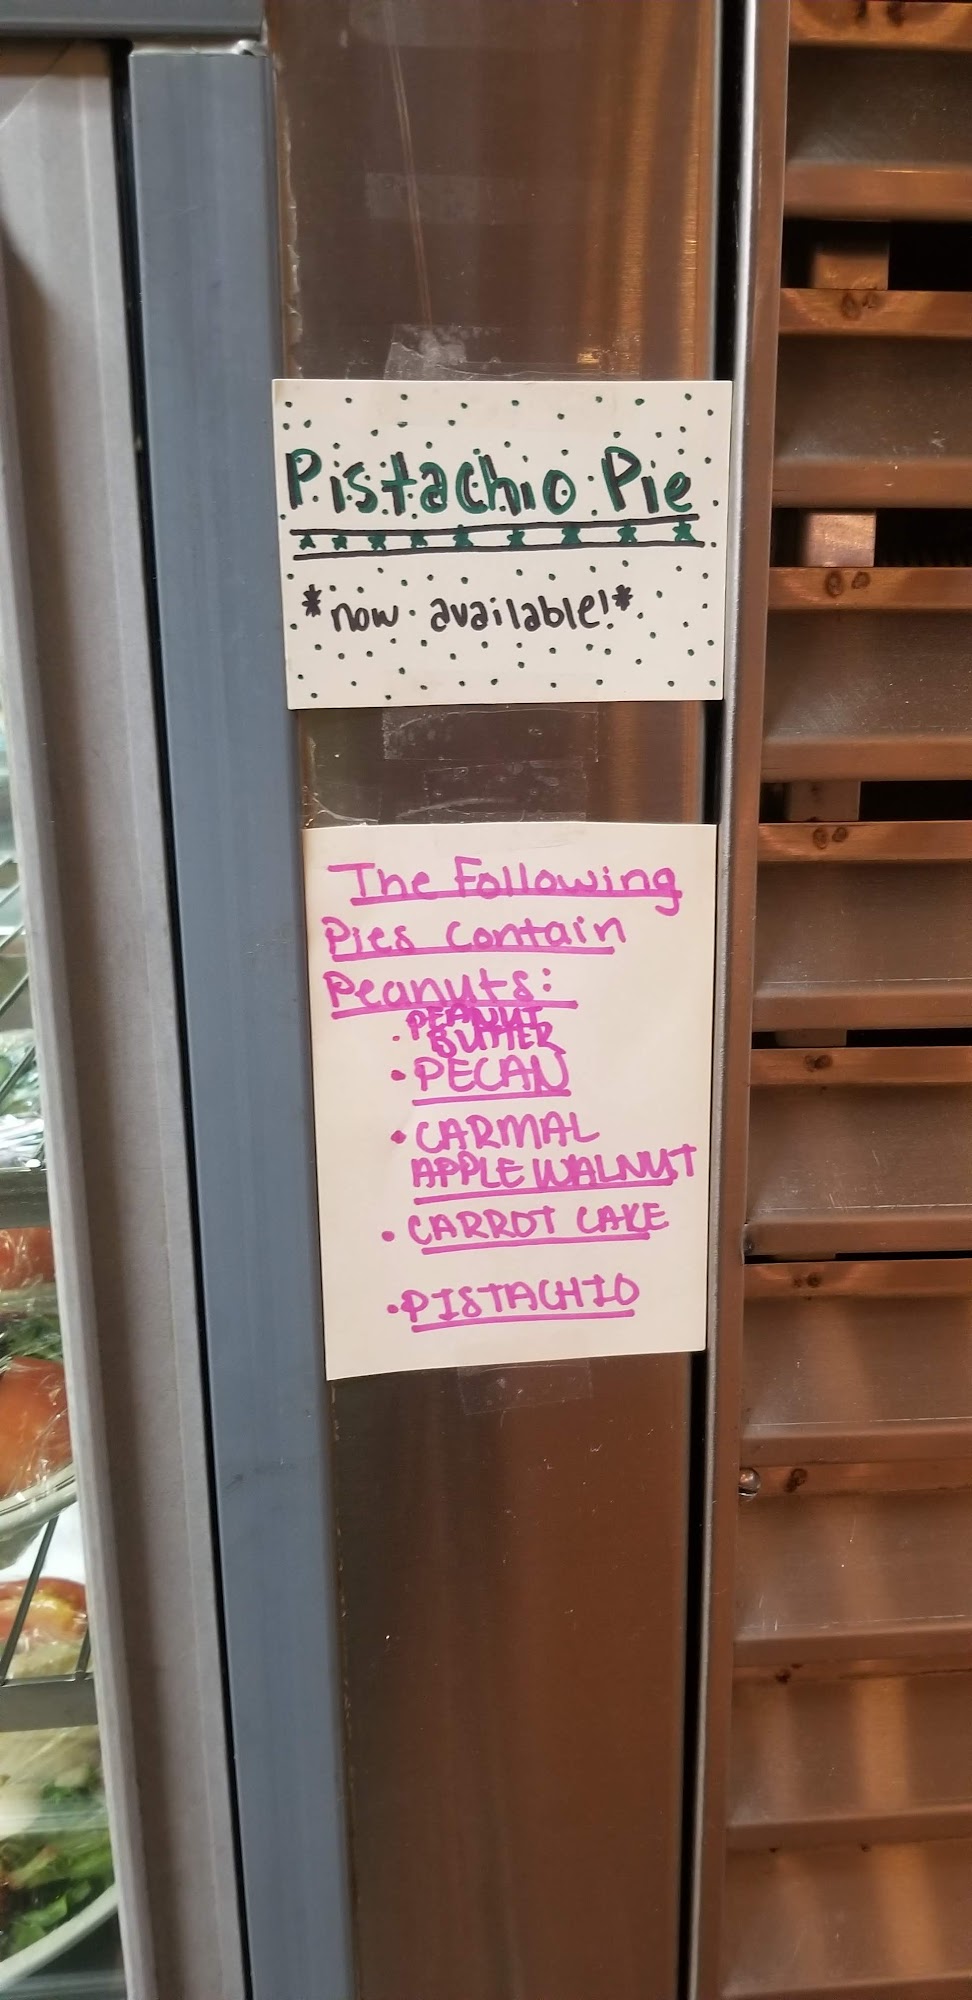 Pistachio Pie
*now available!*
The Following
Pies Contain
Peanuts:
• PEANUT
BUTTER
• PECAN
• CARMAL
APPLE WALNUT
• CARROT CAKE
• PISTACHIO